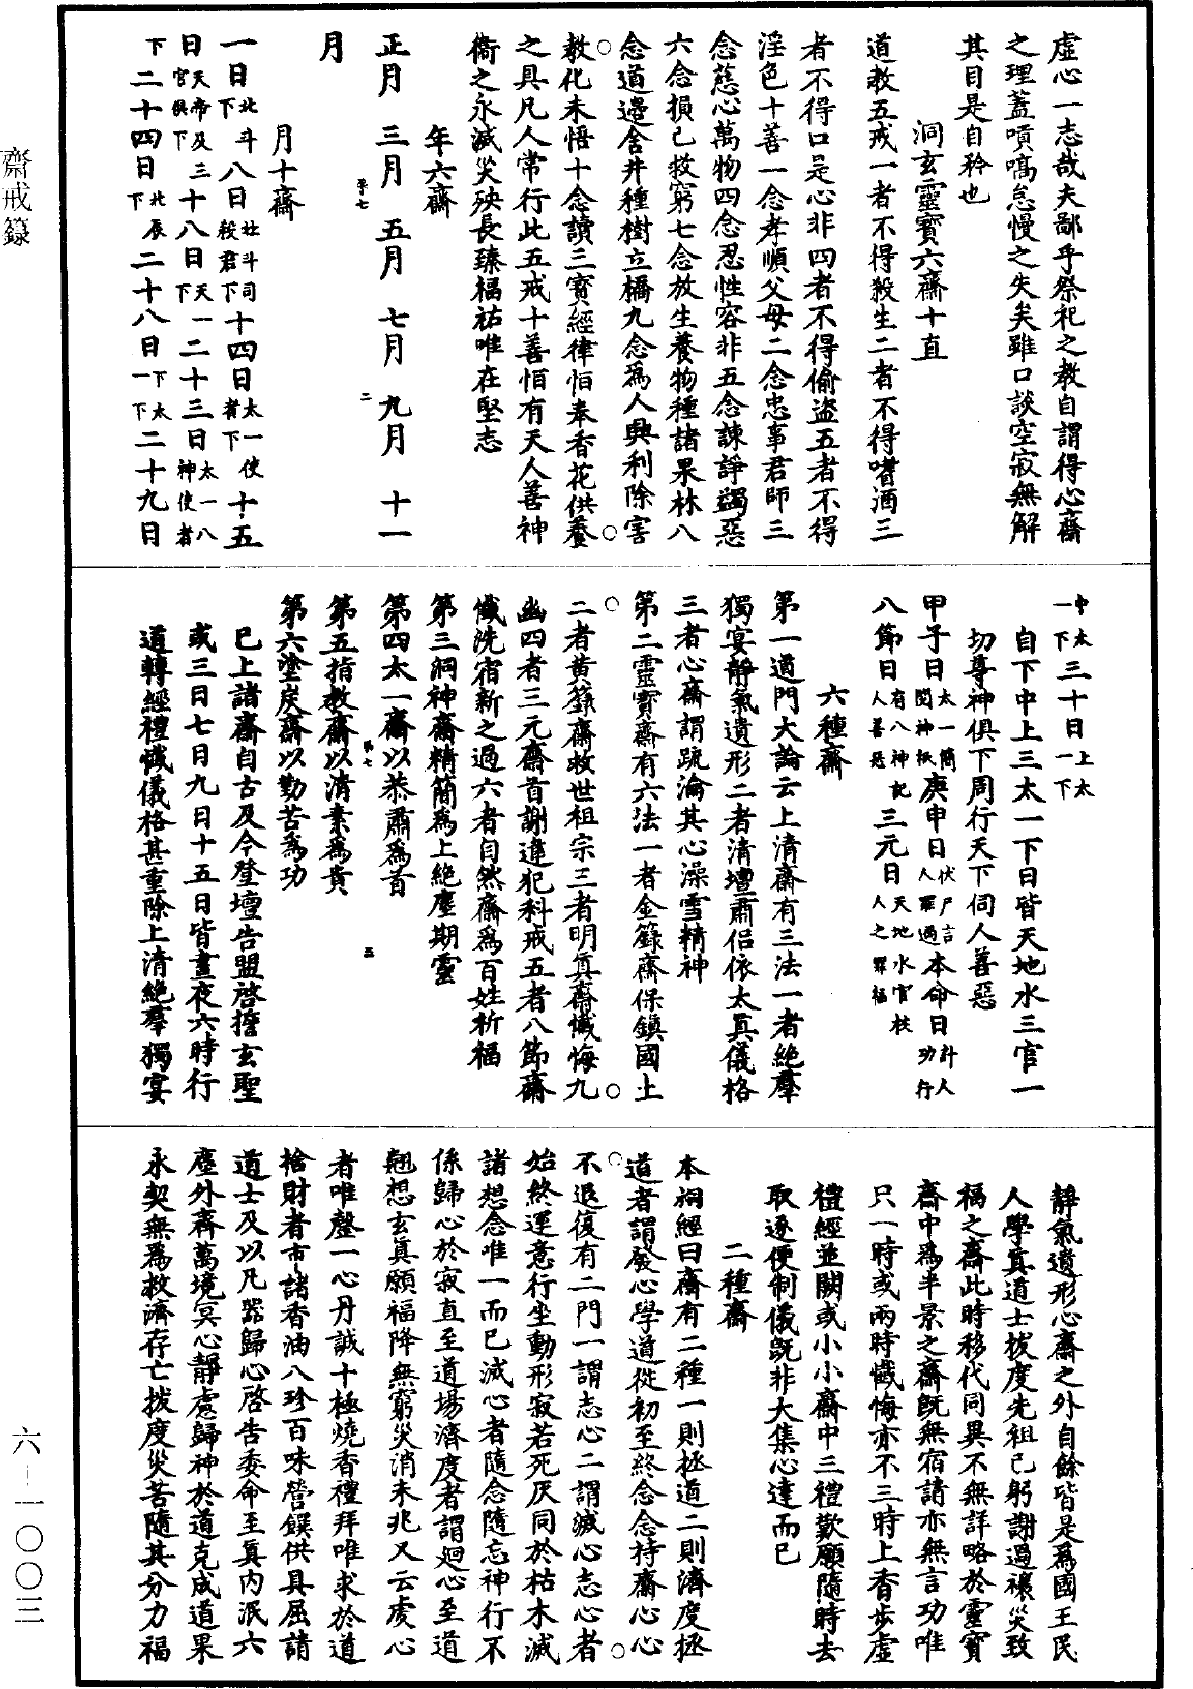 齋戒籙
虛心一志哉夫鄙乎祭祀之教自謂得心齋
之理蓋嘖嗃怠慢之失矣雖口談空寂無解
其目是自矜也
洞玄靈寶六齋十直
道教五戒一者不得殺生二者不得嗜酒三
者不得口是心非四者不得偷盜五者不得
淫色十善一念孝順父母二念忠事君師三
念慈心萬物四念忍性容非五念諫諍蠲惡
六念損己救窮七念放生養物種諸果林八
念道邊舍井種樹立橋九念為人興利除害
教化未悟十念讀三寶經律恒奉香花供養
之具凡人常行此五戒十善恒有天人善神
衛之永滅災殃長臻福祐唯在堅志
年六齋
正月 三月 五月 七月 九月 十一
月
月十齋
一日北斗下八日北斗司殺君下十四日太一使者下十五
日天帝及三官俱下十八日天一下二十三日太一八神使者
下二十四日北辰下二十八日下太一下二十九日
中太一下三十日上太一下
自下中上三太一下日皆天地水三官一
切尊神俱下周行天下伺人善惡
甲子日太一簡閱神祇庚申日伏尸言人罪過本命日計人功行
八節日有八神記人善惡三元日天地水官校人之罪福
六種齋
第一道門大論云上清齋有三法一者絕羣
獨宴靜氣遺形二者清壇肅侶依太真儀格
三者心齋謂疏瀹其心澡雪精神
第二靈寶齋有六法一者金籙齋保鎮國土
二者黃籙齋救世祖宗三者明真齋懺悔九
幽四者三元齋首謝違犯科戒五者八節齋
懺洗宿新之過六者自然齋為百姓祈福
第三洞神齋精簡為上絕塵期靈
第四太一齋以恭肅為首
第五指教齋以清素為貴
第六塗炭齋以勤苦為功
已上諸齋自古及今登壇告盟啓擔玄聖
或三日七日九日十五日皆晝夜六時行
道轉經禮懺儀格甚重除上清絕羣獨宴
靜氣遺形心齋之外自餘皆是為國王民
人學真道士拔度先祖己躬謝過禳災致
福之齋此時移代同異不無詳略於靈寶
齋中為半景之齋既無宿請亦無言功唯
只一時或兩時懺悔亦不三時上香步虛
禮經並闕或小小齋中三禮歎願隨時去
取逐便制儀既非大集心達而已
二種齋
本相經曰齋有二種一則拯道二則濟度拯
道者謂發心學道從初至終念念持齋心心
不退復有二門一謂志心二謂滅心志心者
始終運意行坐動形寂若死灰同於枯木滅
諸想念唯一而已滅心者隨念隨忘神行不
係歸心於寂直至道場濟度者謂迴心至道
翹想玄真願福降無窮災消未兆又云虔心
者唯罄一心丹誠十極燒香禮拜唯求於道
捨財者市諸香油八珍百味營饌供具屈請
道士及以凡器歸心啓告委命至真內泯六
塵外齋萬境冥心靜慮歸神於道克成道果
永契無為救濟存亡拔度災苦隨其分力福
六-一〇〇三